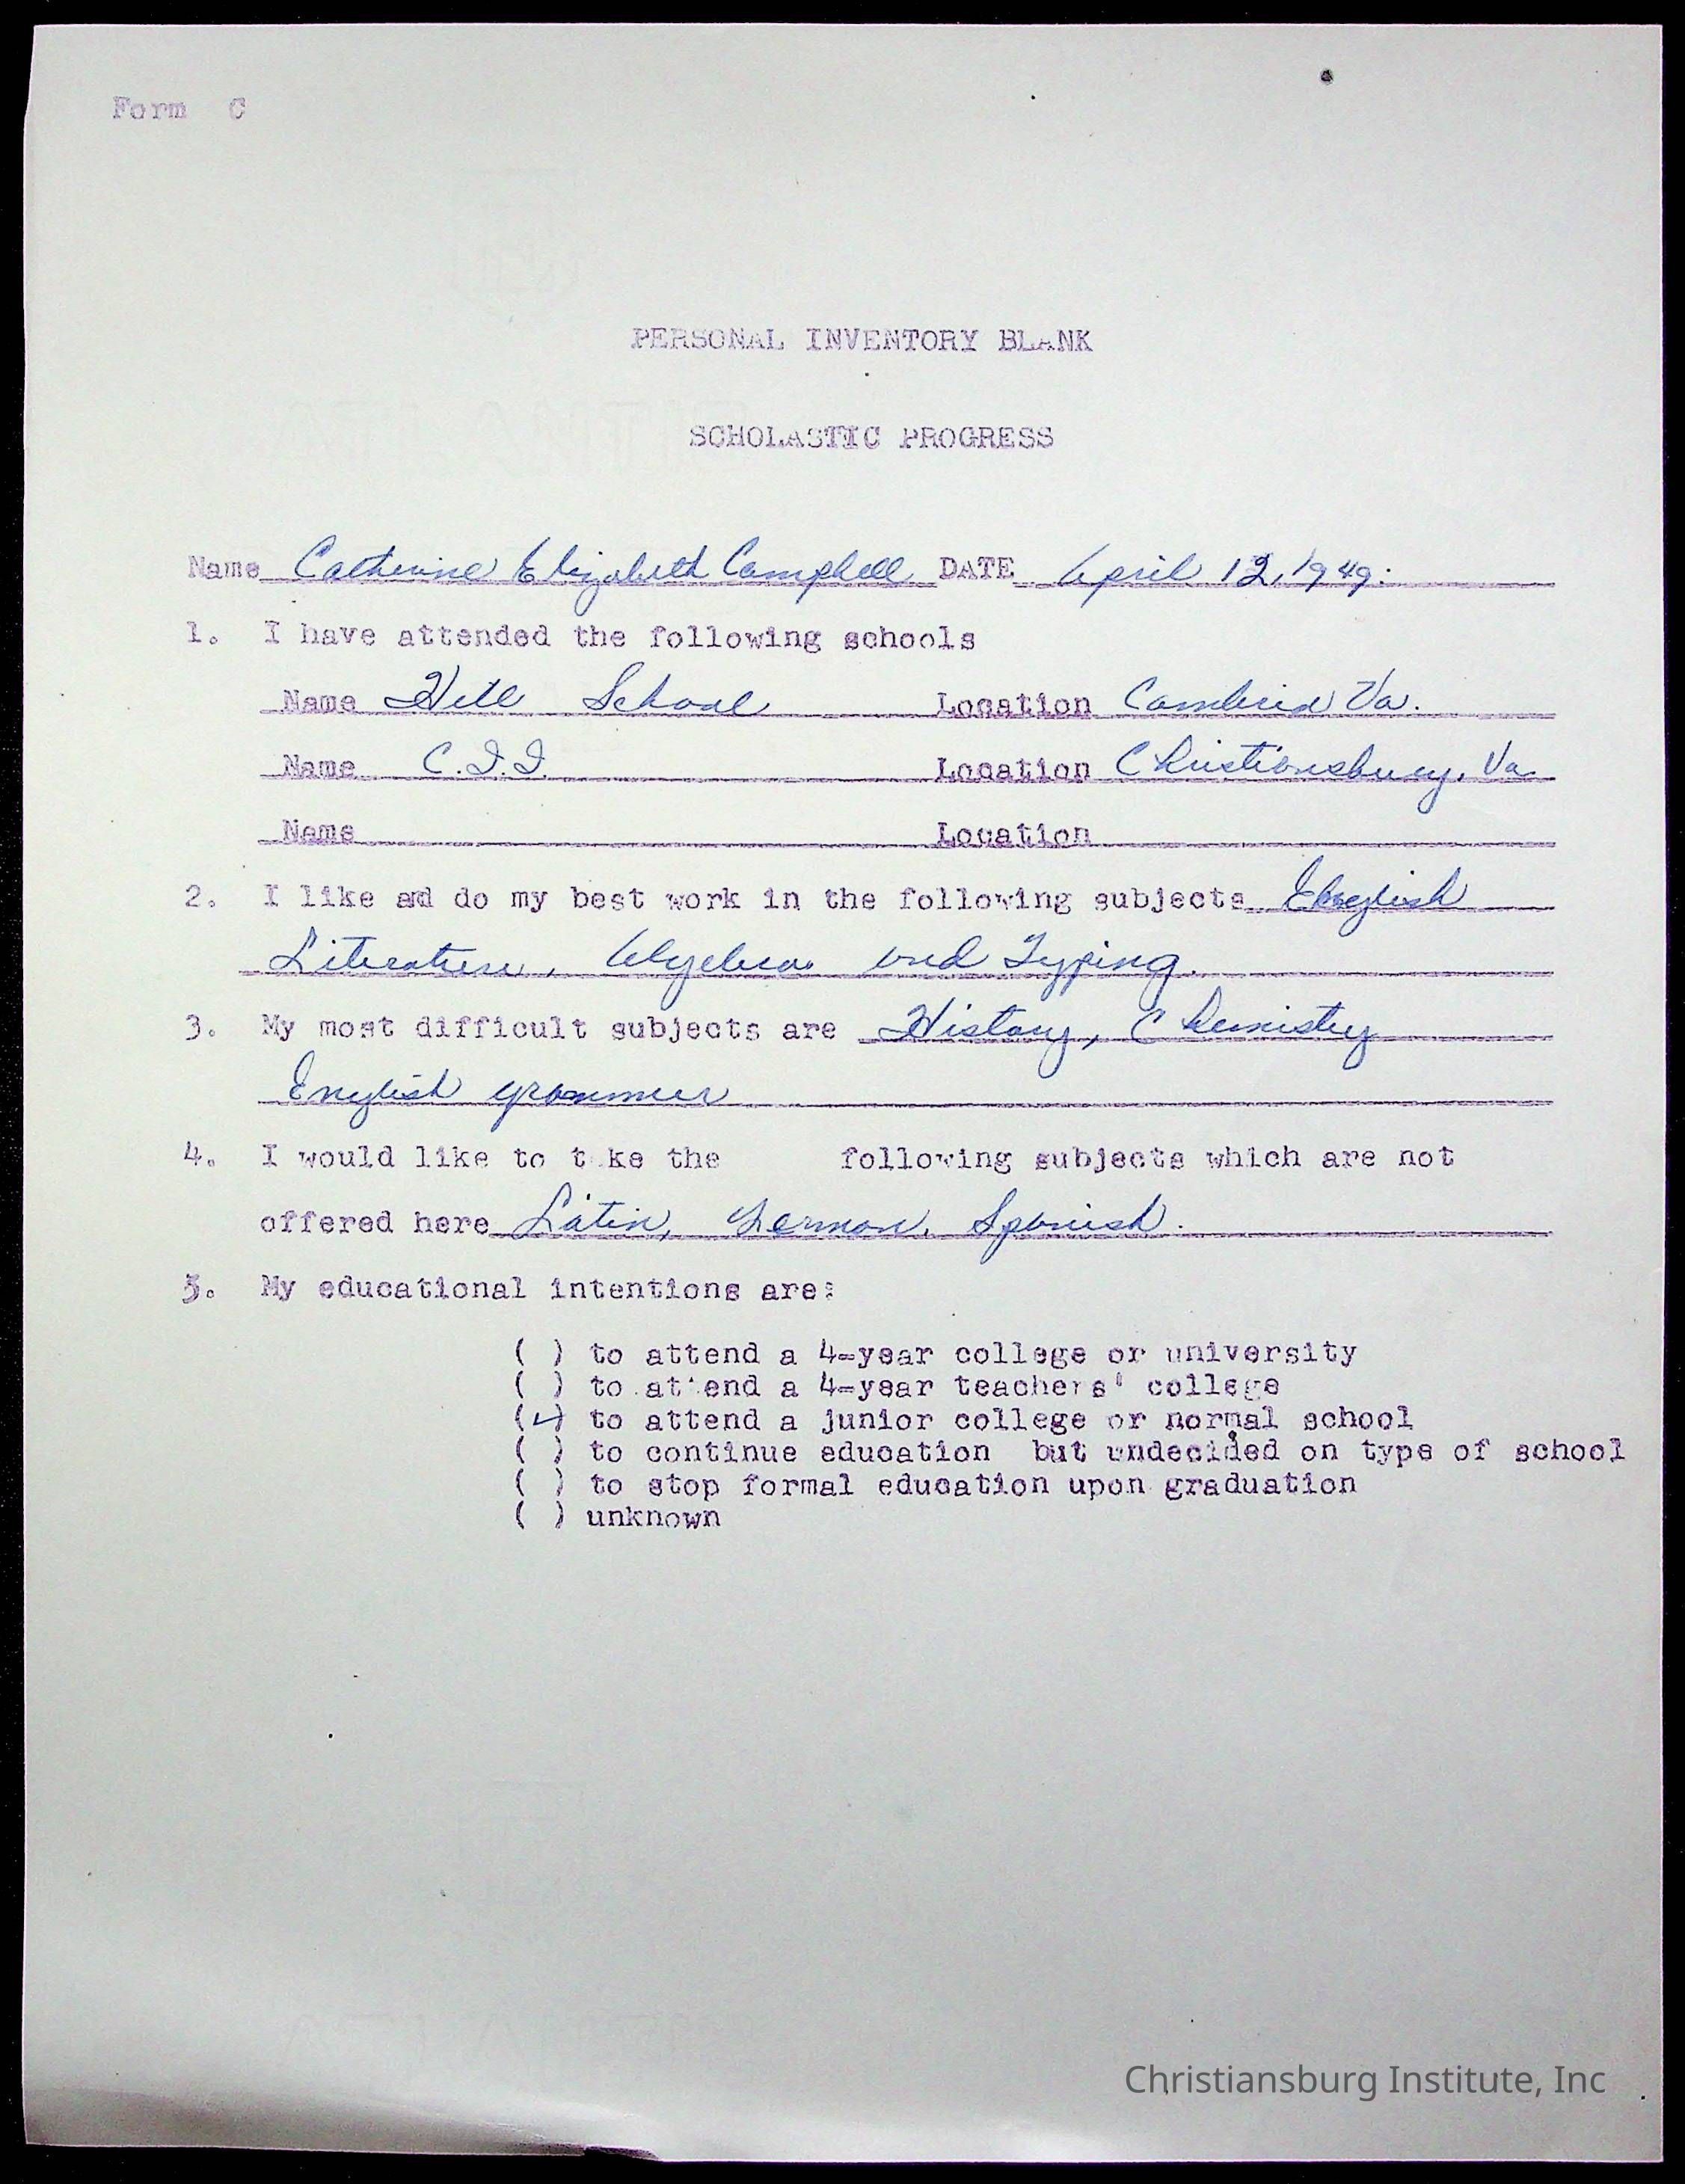 Form C
PERSONAL INVENTORY BLANK
SCHOLASTIC PROGRESS
Name Catherine Elizabeth Campbell DATE April 12, 1949.
1. I have attended the following schools
Name Hill School Location Cambria Va.
Name C.I.I. Location Christiansburg, Va
Name Location
2. I like and do my best work in the following subjects English
Literature, Algebra and Typing.
3. My most difficult subjects are History, Chemistry
English grammer
4. I would like to t ke the following subjects which are not
offered here Latin, German, Spanish.
5. My educational intentions are:
( ) to attend a 4-year college or university
( ) to attend a 4-year teachers' college
(✓) to attend a junior college or normal school
( ) to continue education but undecided on type of school
( ) to stop formal education upon graduation
( ) unknown
Christiansburg Institute, Inc